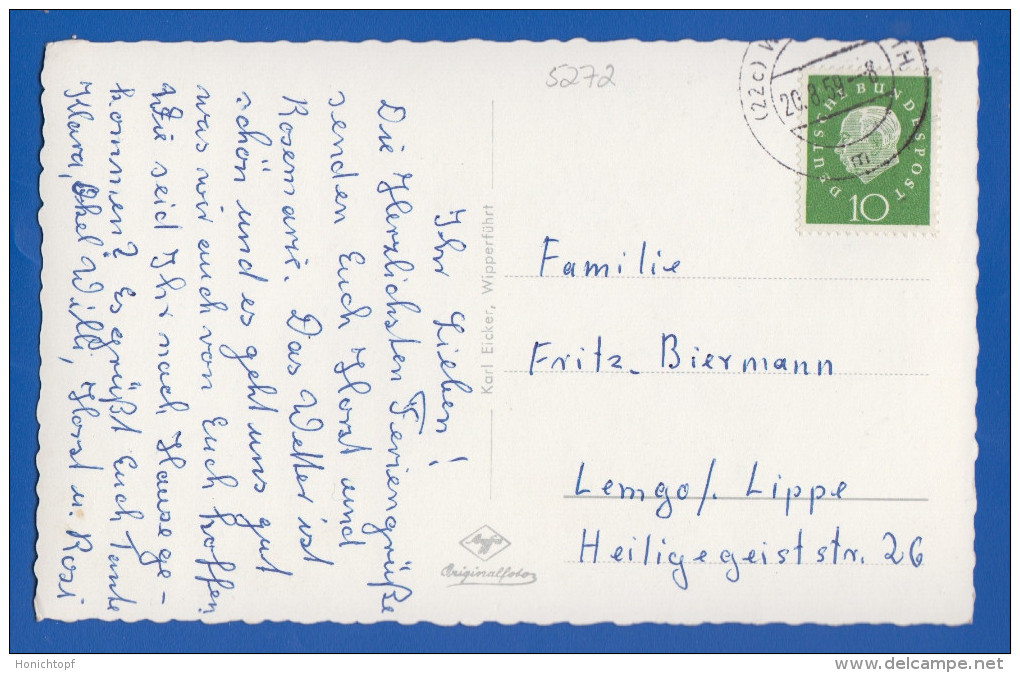 Ihr Lieben!
Die Herzlichsten Feriengrüße
senden Euch Horst und
Rosemarie. Das Wetter ist
schön und es geht uns gut
was wir auch von Euch hoffen.
Wie seid Ihr nach Hausege-
kommen? Es grüßt Euch Tante
Klara, Onkel Willi, Horst u. Rosi
Karl Eicker, Wipperführt
Agfa
Originalfoto
5272
(22c) W TH
20.8.59--8
E
DEUTSCHE BUNDESPOST
10
Familie
Fritz Biermann
Lemgo/. Lippe
Heiligegeiststr. 26
Honichtopf
delcampe.net